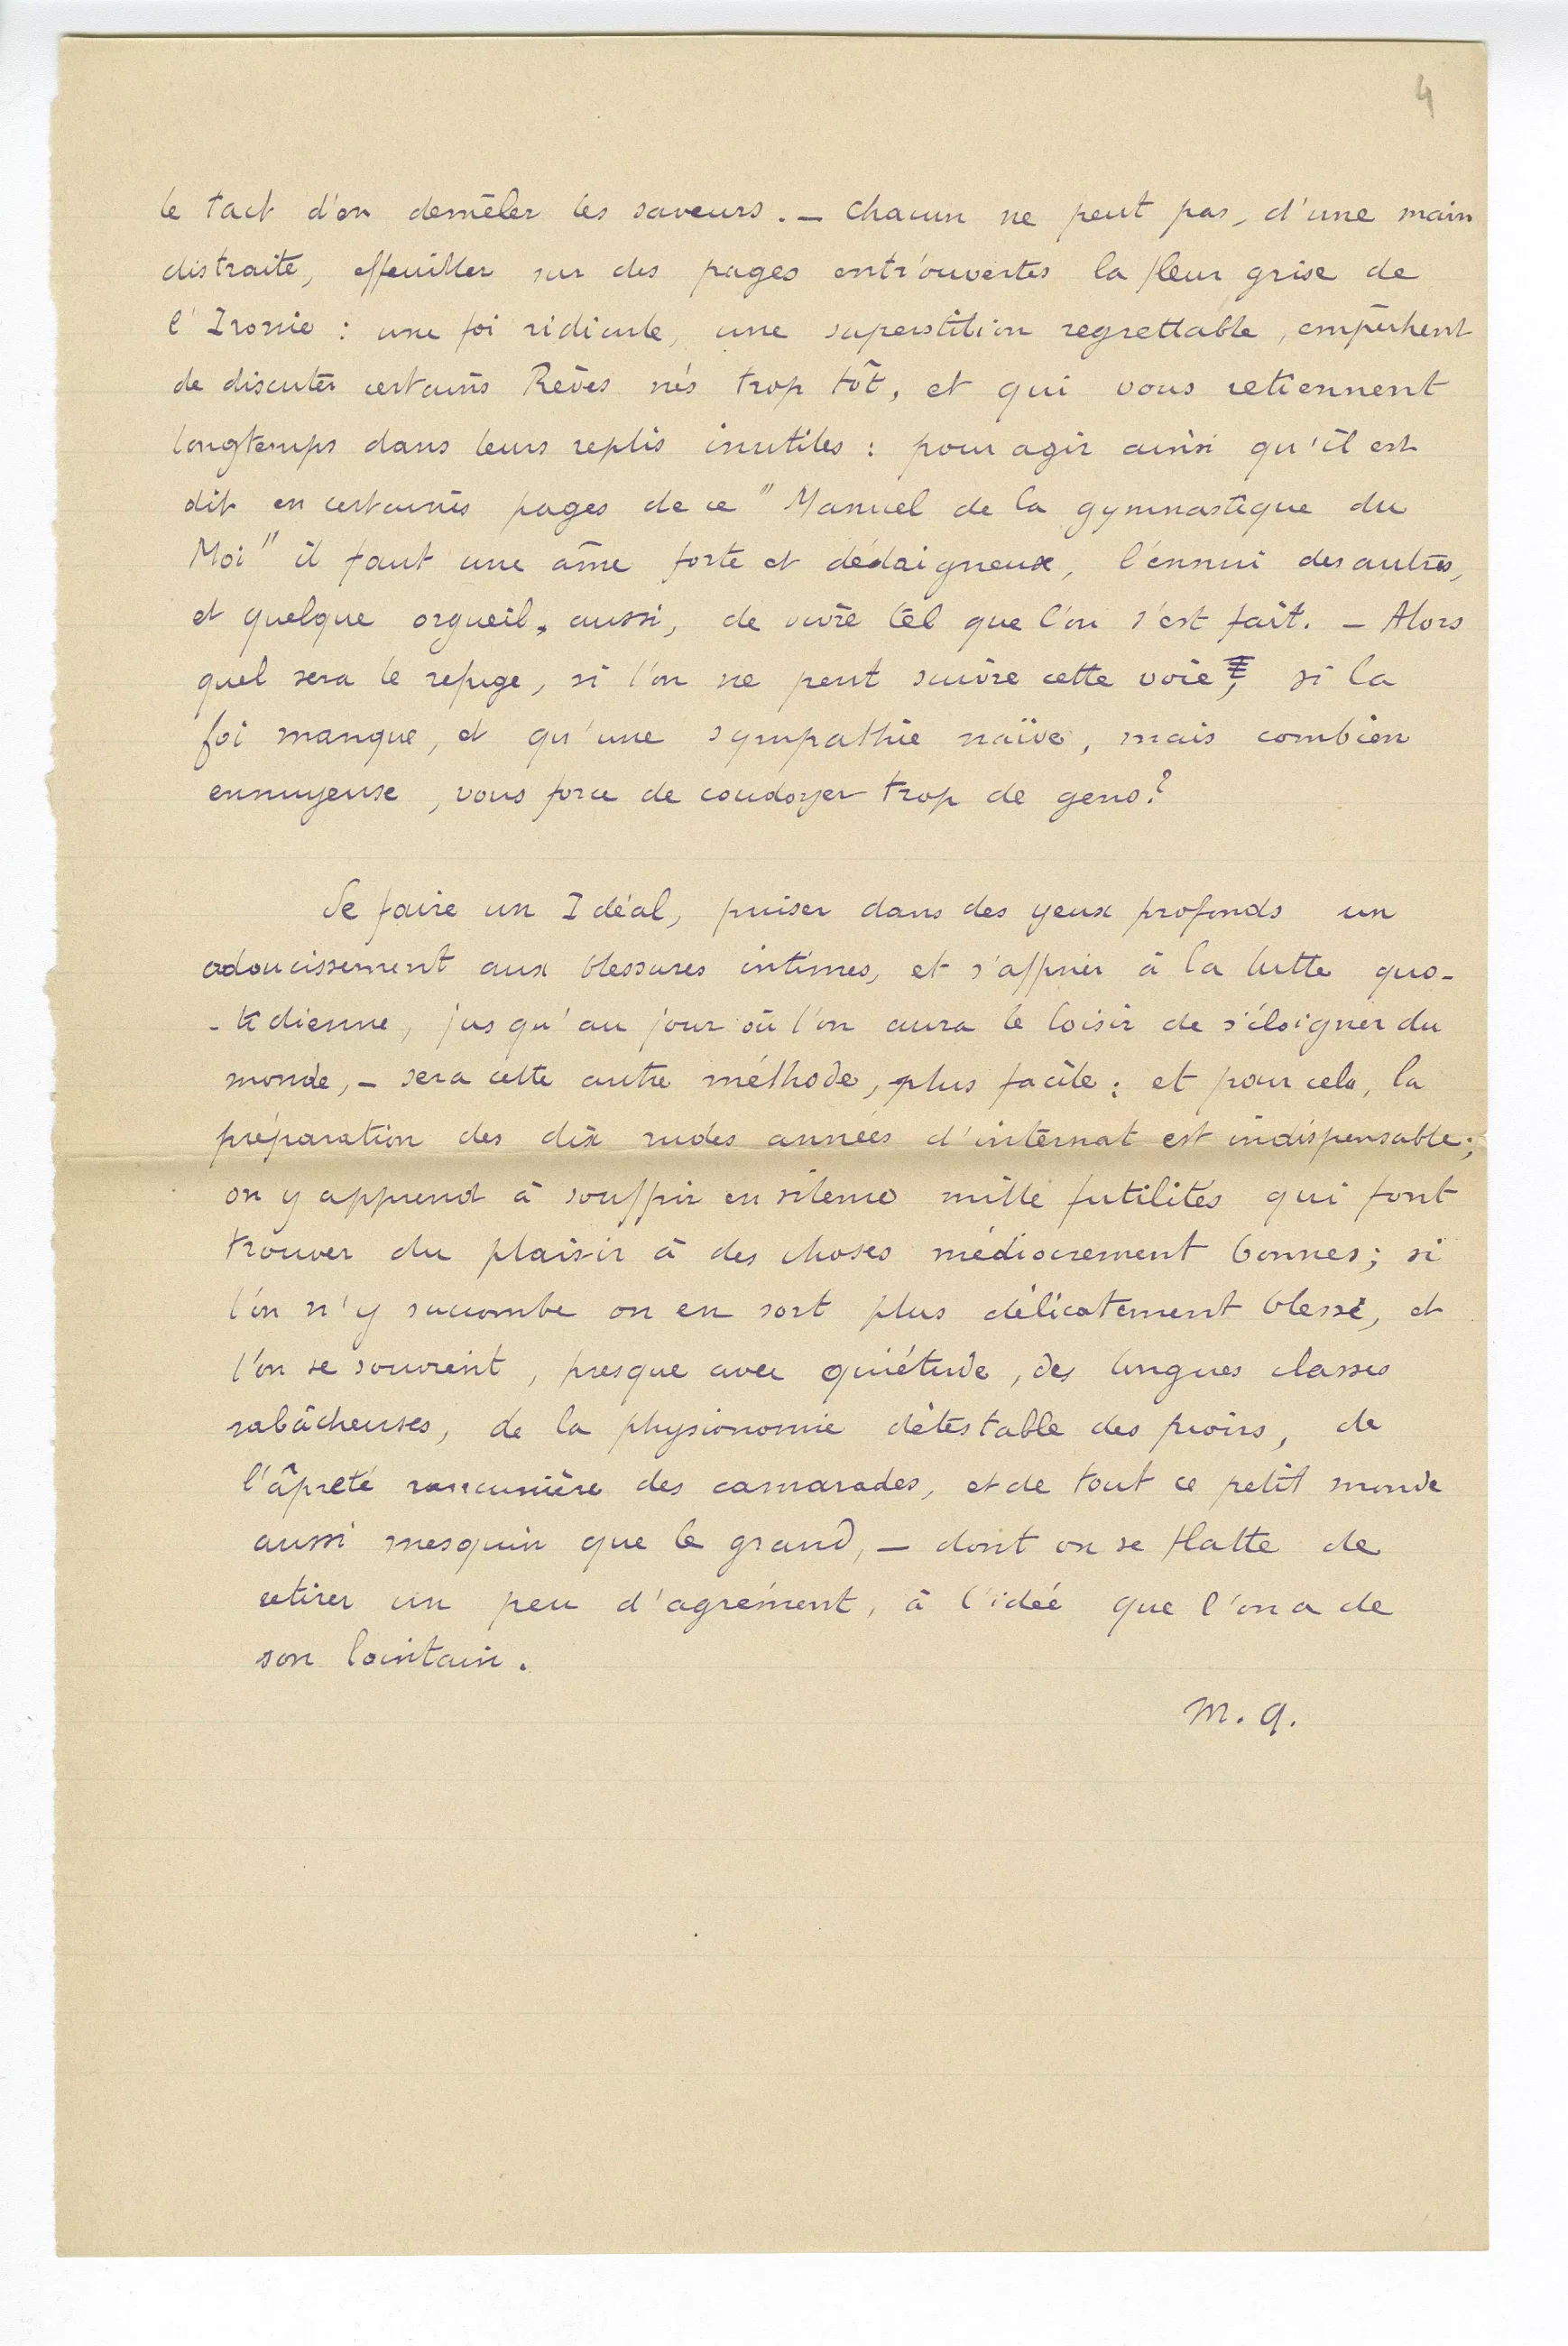 4
le tact d'en demêler les saveurs. — Chacun ne peut pas, d'une main
distraite, effeuiller sur des pages entr'ouvertes la fleur grise de
l'Ironie : une foi ridicule, une superstition regrettable, empêchent
de discuter certains Rêves nés trop tôt, et qui vous retiennent
longtemps dans leurs replis inutiles : pour agir ainsi qu'il est
dit en certaines pages de ce "Manuel de la gymnastique du
Moi" il faut une âme forte et dédaigneuse, l'ennui des autres,
et quelque orgueil, aussi, de vivre tel que l'on s'est fait. — Alors
quel sera le refuge, si l'on ne peut suivre cette voie, si la
foi manque, et qu'une sympathie naïve, mais combien
ennuyeuse, vous force de coudoyer trop de gens ?
Se faire un Idéal, puiser dans des yeux profonds un
adoucissement aux blessures intimes, et s'affiner à la lutte quo-
-tidienne, jusqu'au jour où l'on aura le loisir de s'éloigner du
monde, — sera cette autre méthode, plus facile : et pour cela, la
préparation des dix rudes années d'internat est indispensable ;
on y apprend à souffrir en silence mille futilités qui font
trouver du plaisir à des choses médiocrement bonnes ; si
l'on n'y succombe on en sort plus délicatement blessé, et
l'on se souvient, presque avec quiétude, des longues classes
rabâcheuses, de la physionomie détestable des pions, de
l'âpreté rancunière des camarades, et de tout ce petit monde
aussi mesquin que le grand, — dont on se flatte de
retirer un peu d'agrément, à l'idée que l'on a de
son lointain.
M. A.